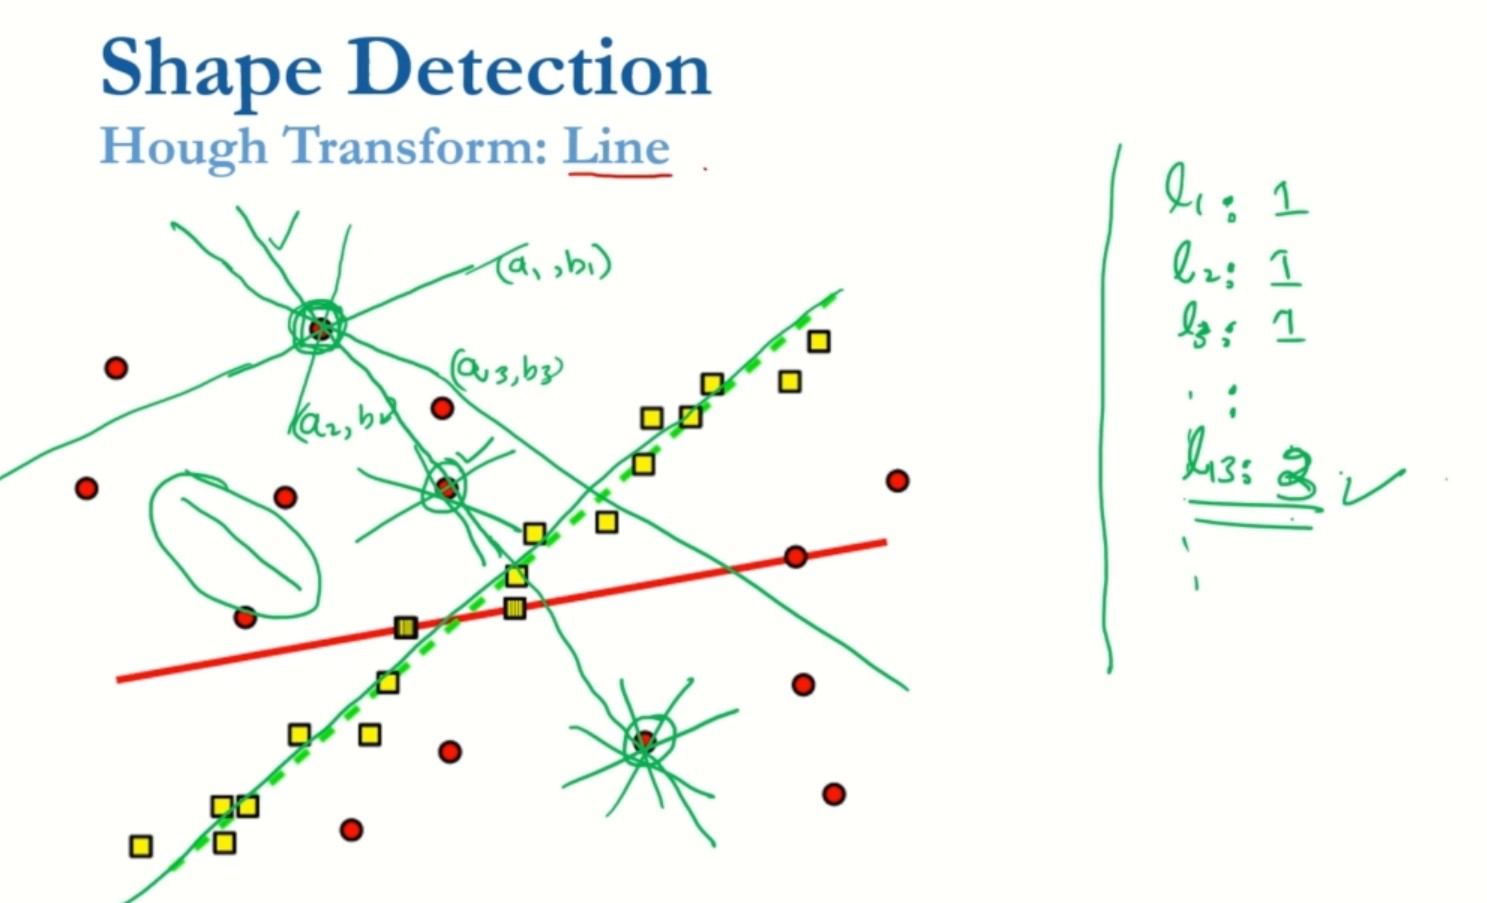 Shape Detection
Hough Transform: Line
(a₁, b₁)
(a₃, b₃)
(a₂, b₂
l₁: 1
l₂: 1
l₃: 1
l₁₃: 3